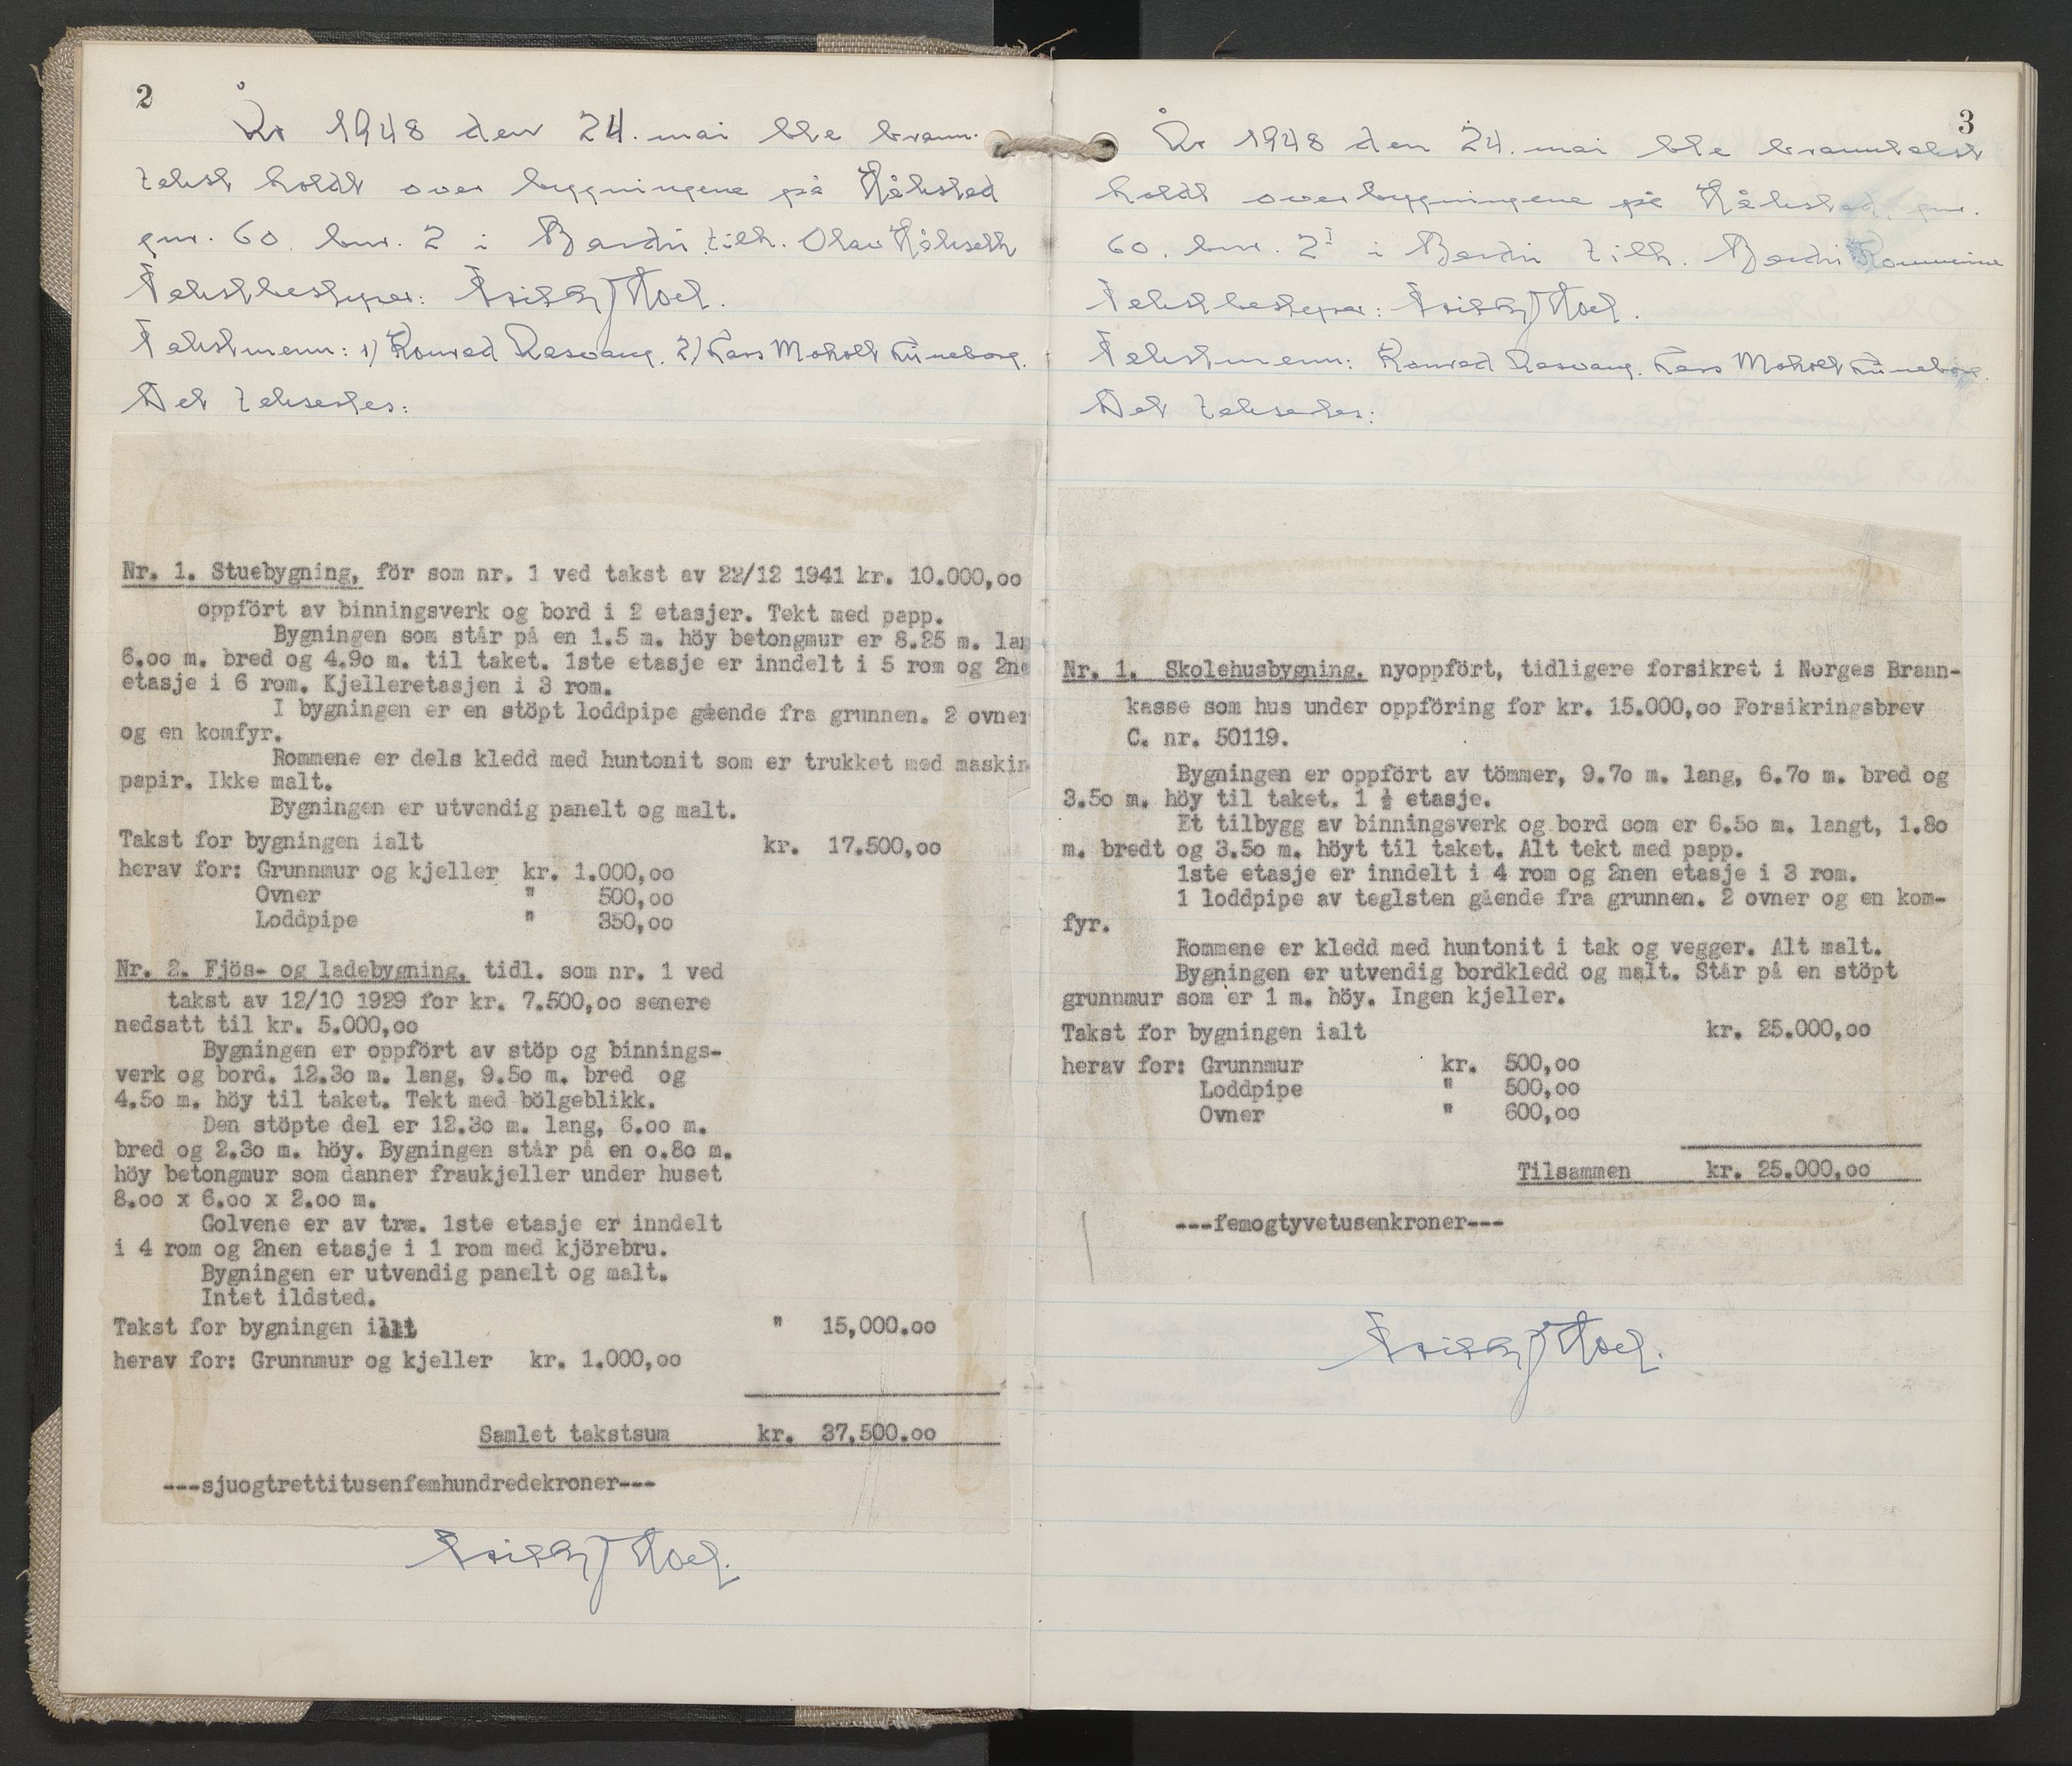 2
År 1948 den 24. mai ble brann-
takst holdt over bygningene på Håkstad
gnr. 60. bnr. 2 i Bardu tilh. Olav Håkseth
Takstbestyrer:
Takstmenn: 1) Konrad Rasvang. 2) Lars Moholt Lüneborg.
Det takseres:
Nr. 1. Stuebygning, för som nr. 1 ved takst av 22/12 1941 kr. 10.000,oo
oppfört av binningsverk og bord i 2 etasjer. Tekt med papp.
Bygningen som står på en 1.5 m. höy betongmur er 8.25 m. lan
6.oo m. bred og 4.9o m. til taket. 1ste etasje er inndelt i 5 rom og 2ne
etasje i 6 rom. Kjelleretasjen i 3 rom.
I bygningen er en stöpt loddpipe gående fra grunnen. 2 ovner
og en komfyr.
Rommene er dels kledd med huntonit som er trukket med maskin
papir. Ikke malt.
Bygningen er utvendig panelt og malt.
Takst for bygningen ialt kr. 17.500,oo
herav for: Grunnmur og kjeller kr. 1.000,oo
Ovner " 500,oo
Loddpipe " 350,oo
Nr. 2. Fjös- og ladebygning, tidl. som nr. 1 ved
takst av 12/10 1929 for kr. 7.500,oo senere
nedsatt til kr. 5.000,oo
Bygningen er oppfört av stöp og binnings-
verk og bord. 12.3o m. lang, 9.5o m. bred og
4.5o m. höy til taket. Tekt med bölgeblikk.
Den stöpte del er 12.3o m. lang, 6.oo m.
bred og 2.3o m. höy. Bygningen står på en o.8o m.
höy betongmur som danner fraukjeller under huset
8.oo x 6.oo x 2.oo m.
Golvene er av træ. 1ste etasje er inndelt
i 4 rom og 2nen etasje i 1 rom med kjörebru.
Bygningen er utvendig panelt og malt.
Intet ildsted.
Takst for bygningen ialt " 15,000.oo
herav for: Grunnmur og kjeller kr. 1.000,oo
Samlet takstsum kr. 37,500.oo
---sjuogtrettitusenfemhundredekroner---
3
År 1948 den 24. mai ble branntakst
holdt over bygningene på Håkstad, gnr.
60. bnr. 2 i Bardu tilh. Bardu Kommune
Takstbestyrer:
Takstmenn: Konrad Rasvang. Lars Moholt Lüneborg.
Det takseres:
Nr. 1. Skolehusbygning. nyoppfört, tidligere forsikret i Norges Brann-
kasse som hus under oppföring for kr. 15.000,oo Forsikringsbrev
C. nr. 50119.
Bygningen er oppfört av tömmer, 9.7o m. lang, 6.7o m. bred og
3.5o m. höy til taket. 1 ½ etasje.
Et tilbygg av binningsverk og bord som er 6.5o m. langt, 1.8o
m. bredt og 3.5o m. höyt til taket. Alt tekt med papp.
1ste etasje er inndelt i 4 rom og 2nen etasje i 3 rom.
1 loddpipe av teglsten gående fra grunnen. 2 ovner og en kom-
fyr.
Rommene er kledd med huntonit i tak og vegger. Alt malt.
Bygningen er utvendig bordkledd og malt. Står på en stöpt
grunnmur som er 1 m. höy. Ingen kjeller.
Takst for bygningen ialt kr. 25.000,oo
herav for: Grunnmur kr. 500,oo
Loddpipe " 500,oo
Ovner " 600,oo
Tilsammen kr. 25.000,oo
---femogtyvetusenkroner---